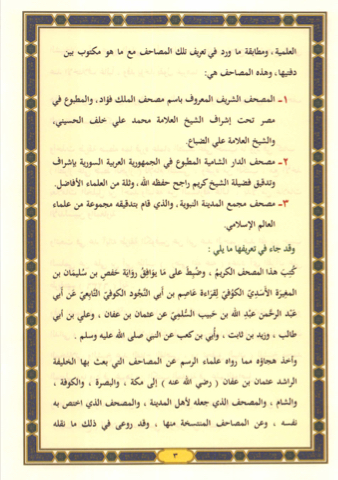 العلمية ، ومطابقة ما ورد في تعريف تلك المصاحف مع ما هو مكتوب بين
دفتيها، وهذه المصاحف هي:
١- المصحف الشريف المعروف باسم مصحف الملك فؤاد، والمطبوع في
مصر تحت إشراف الشيخ العلامة محمد علي خلف الحسيني،
والشيخ العلامة علي الضباع.
٢- مصحف الدار الشامية المطبوع في الجمهورية العربية السورية بإشراف
وتدقيق فضيلة الشيخ كريم راجح حفظه الله، وثلة من العلماء الأفاضل.
٣- مصحف مجمع المدينة النبوية، والذي قام بتدقيقه مجموعة من علماء
العالم الإسلامي.
وقد جاء في تعريفها ما يلي :
كُتِبَ هذا المصحف الكريمُ ، وضُبِطَ على مَا يوَافِقُ رِوَايَةَ حَفصِ بن سُليمَان بن
المغِيرَة الأَسَدِيّ الكوُفيّ لِقرَاءَة عَاصِم بن أبي النَّجُود الكوفيّ التَّابِعيّ عَن أبي
عَبْد الرحمن عبْدِ الله بن حَبيب السُّلَمِيّ عن عثمان بن عفان ، وعلي بن أبي
طالب ، وزيد بن ثابت ، وأُبي بن كعب عن النبي صلى الله عليه وسلم .
وأخذ هجاؤه مما رواه علماء الرسم عن المصاحف التي بعث بها الخليفة
الراشد عثمان بن عفان ( رضي الله عنه ) إلى مكة ، والبصرة ، والكوفة ،
والشام ، والمصحف الذي جعله لأهل المدينة ، والمصحف الذي اختص به
نفسه ، وعن المصاحف المنتسخة منها ، وقد روعى في ذلك ما نقله
٣